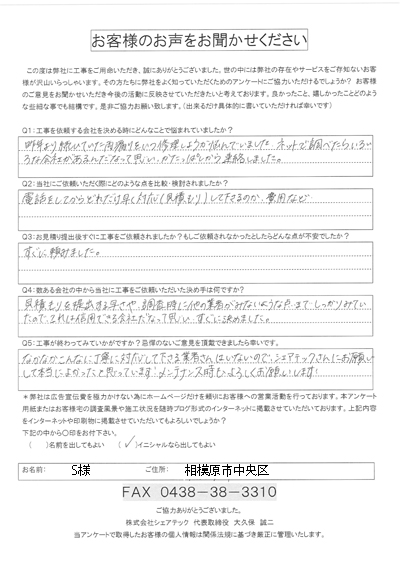 お客様のお声をお聞かせください
この度は弊社に工事をご用命いただき、誠にありがとうございました。世の中には弊社の存在やサービスをご存知ないお客
様が沢山いらっしゃいます。その方たちに弊社をよく知っていただくためのアンケートにご協力いただけるでしょうか? お客様
のご意見をお聞かせいただき今後の活動に反映させていただきたいと考えております。良かったこと、嬉しかったことどのよう
な些細な事でも結構です。是非ご協力お願い致します。(出来るだけ具体的に書いていただければ幸いです)
Q1:工事を依頼する会社を決める時にどんなことで悩まれていましたか?
昨年より続いていた雨漏りをいつ修理しようか悩んでいました。ネットで調べたらいろい
ろな会社があるんだなって思い、かたっぱしから連絡しました。
Q2:当社にご依頼いただく際にどのような点を比較・検討されましたか?
電話をしてからどれだけ早く対応(見積もり)して下さるのか、費用など
Q3:お見積り提出後すぐに工事をご依頼されましたか?もしご依頼されなかったとしたらどんな点が不安でしたか?
すぐに頼みました。
Q4:数ある会社の中から当社に工事をご依頼いただいた決め手は何ですか?
見積もりを提出する早さや、調査時に他の業者がみないような点まで、しっかりみてい
たので、これは信用できる会社だなって思い、すぐに決めました。
Q5:工事が終わってみていかがですか?忌憚のないご意見を頂戴できましたら幸いです。
なかなかこんなに丁寧に対応して下さる業者さんはいないので、シェアテックさんにお願い
して本当によかったと思っています!メンテナンス時もよろしくお願いします!
*弊社は広告宣伝費を極力かけない為にホームページだけを頼りにお客様への営業活動を行っております。本アンケート
用紙またはお客様宅の調査風景や施工状況を随時ブログ形式のインターネットに掲載させていただいております。上記内容
をインターネットや印刷物に掲載させていただいてもよろしいでしょうか?
下記の中から〇印をお付下さい。
( )名前を出してもよい (✓)イニシャルなら出してもよい
お名前: S様 ご住所: 相模原市中央区
FAX 0438-38-3310
ご協力ありがとうございました。
株式会社シェアテック 代表取締役 大久保 誠二
当アンケートで取得したお客様の個人情報は関係法規に基づき厳正に管理いたします。